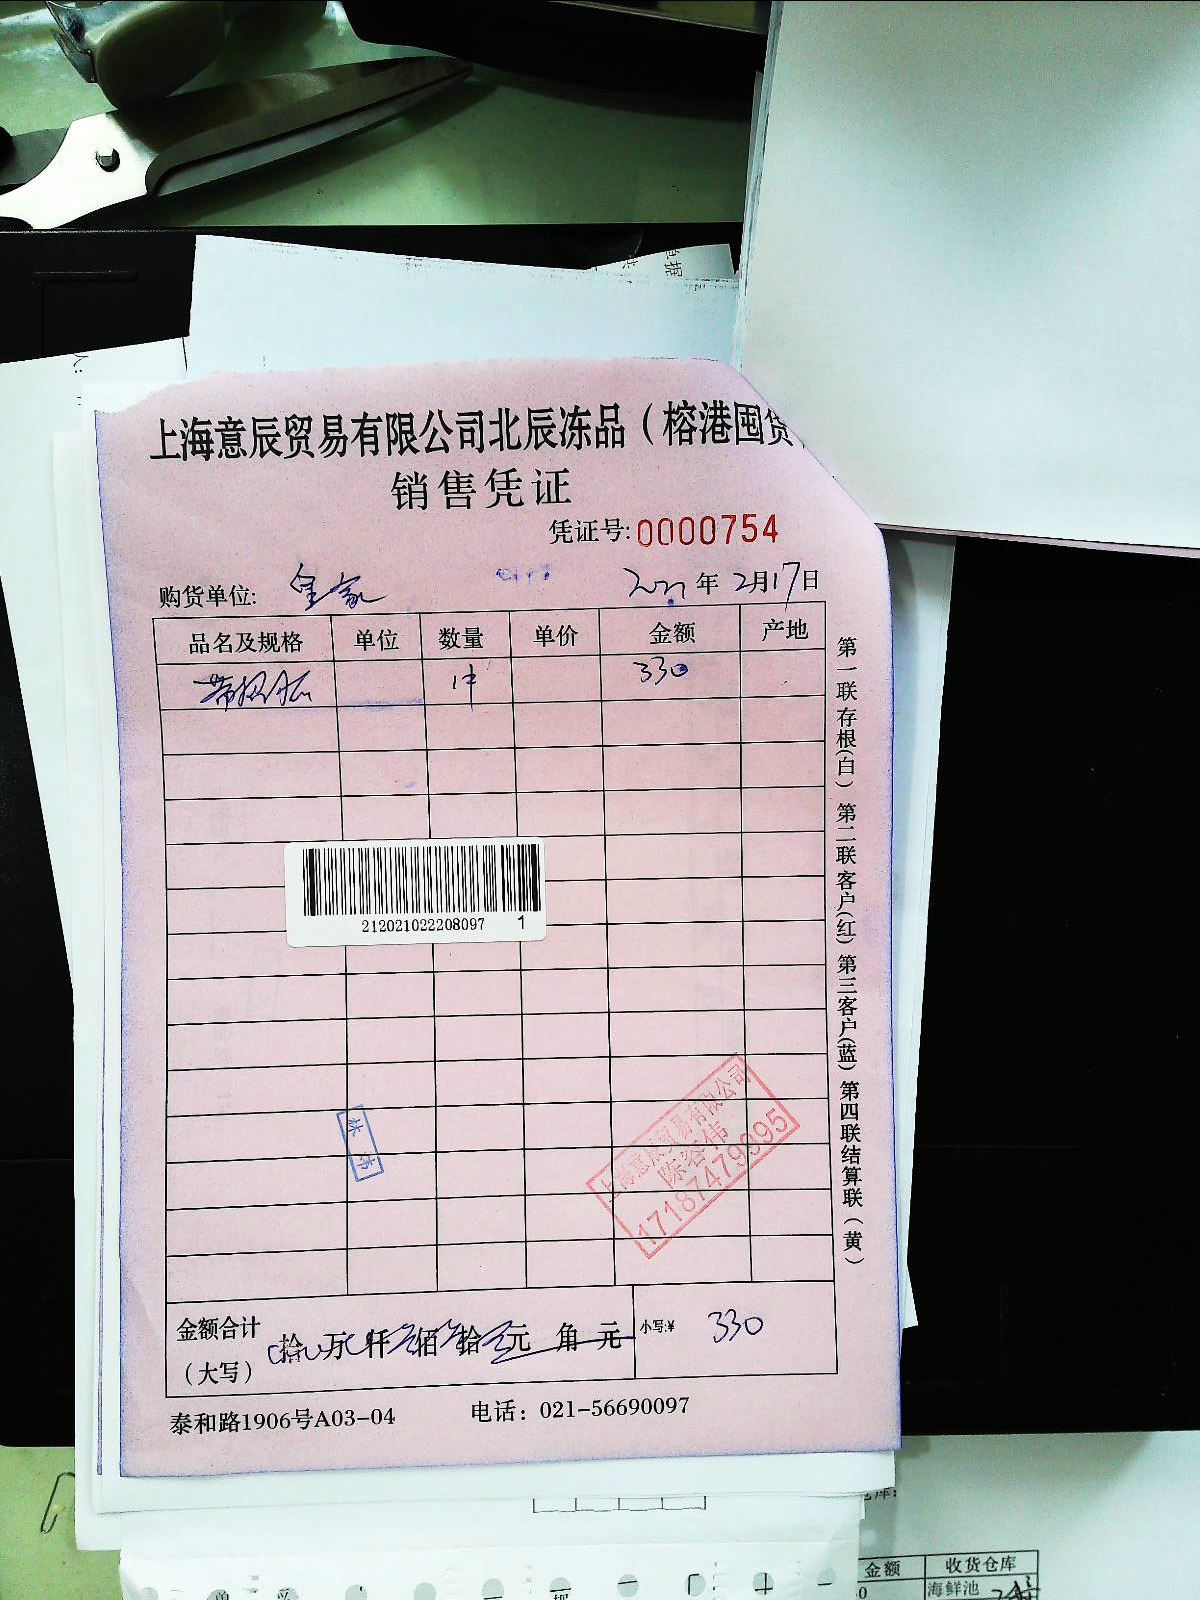 上海意辰贸易有限公司北辰冻品（榕港囤货
销售凭证
凭证号:0000754
购货单位: 皇家 2021年2月17日
品名及规格 单位 数量 单价 金额 产地
1件 330
212021022208097 1
林沛
上海意辰贸易有限公司
陈容伟
17187479995
金额合计（大写） 拾 万 仟 佰 拾 元 角 元 小写:¥ 330
泰和路1906号A03-04 电话：021-56690097
第一联存根(白) 第二联客户(红) 第三客户(蓝) 第四联结算联(黄)
金额 收货仓库
海鲜池